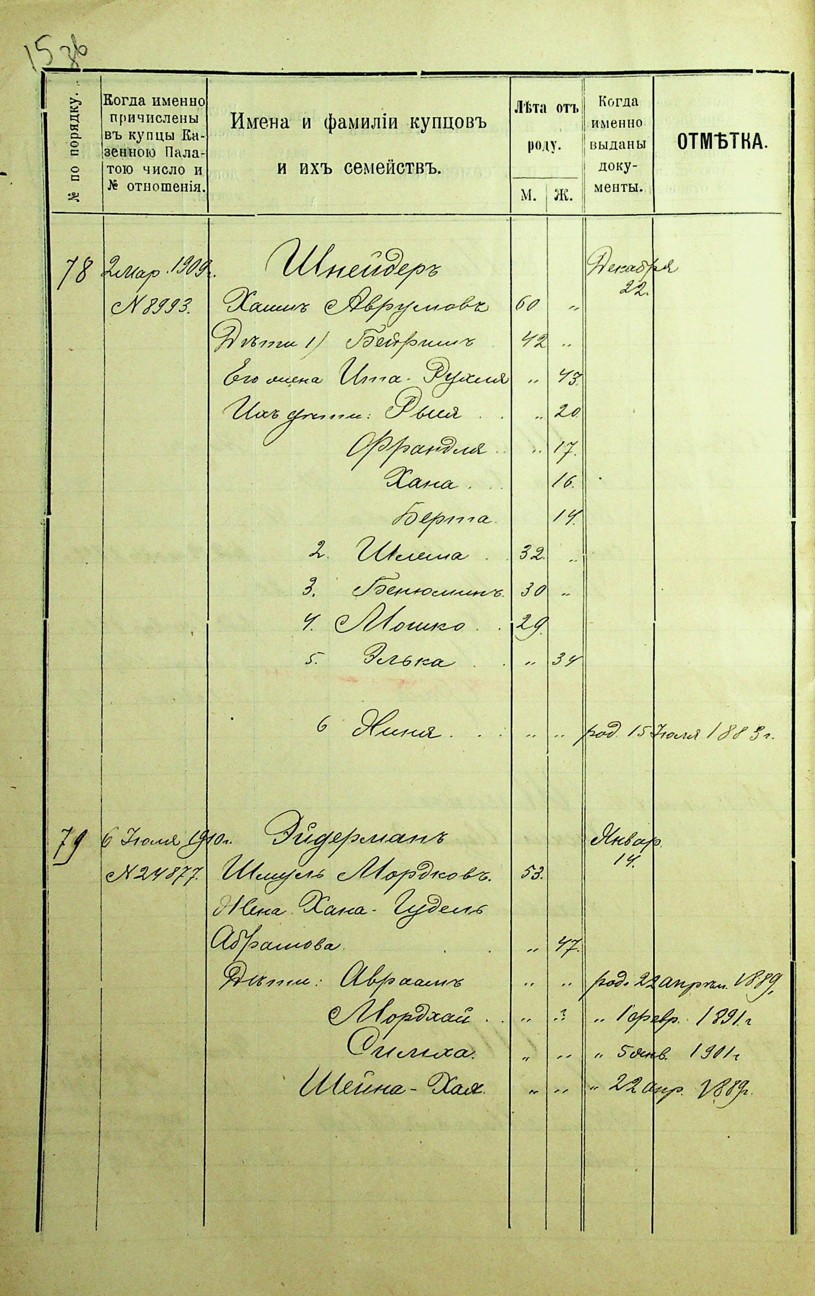 15 об
№ по порядку.
Когда именно причислены въ купцы Казенною Палатою число и № отношенія.
Имена и фамиліи купцовъ и ихъ семействъ.
Лѣта отъ роду.
М. Ж.
Когда именно выданы документы.
ОТМѢТКА.
78 2 мар. 1909 г. Шнейдеръ Декабря 22.
N 8993. Хаимъ Аврумовъ 60 „
Дѣти 1) Бейришъ 42 „
Его жена Ита-Рухля „ 43.
Ихъ дѣти: Рыся „ 20
Франдля „ 17.
Хана 16.
Берта 14.
2. Шлема 32. „
3. Бенюминъ 30 „
4. Мошко 29.
5. Элька „ 34
6 Хиня „ „ род. 15 Іюля 1883 г.
79 6 Іюля 1910 г. Эйдерманъ Январ. 14.
N 24877. Шмуль Мордковъ. 53.
Жена Хана-Гудель
Абрамова „ 47.
Дѣти: Авраамъ „ „ род. 22 апрѣл. 1889,
Мордхай „ „ „ 1 февр. 1891 г
Симха. „ „ „ 5 янв. 1901 г
Шейна-Хая. „ „ „ 22 апр. 1889 г.